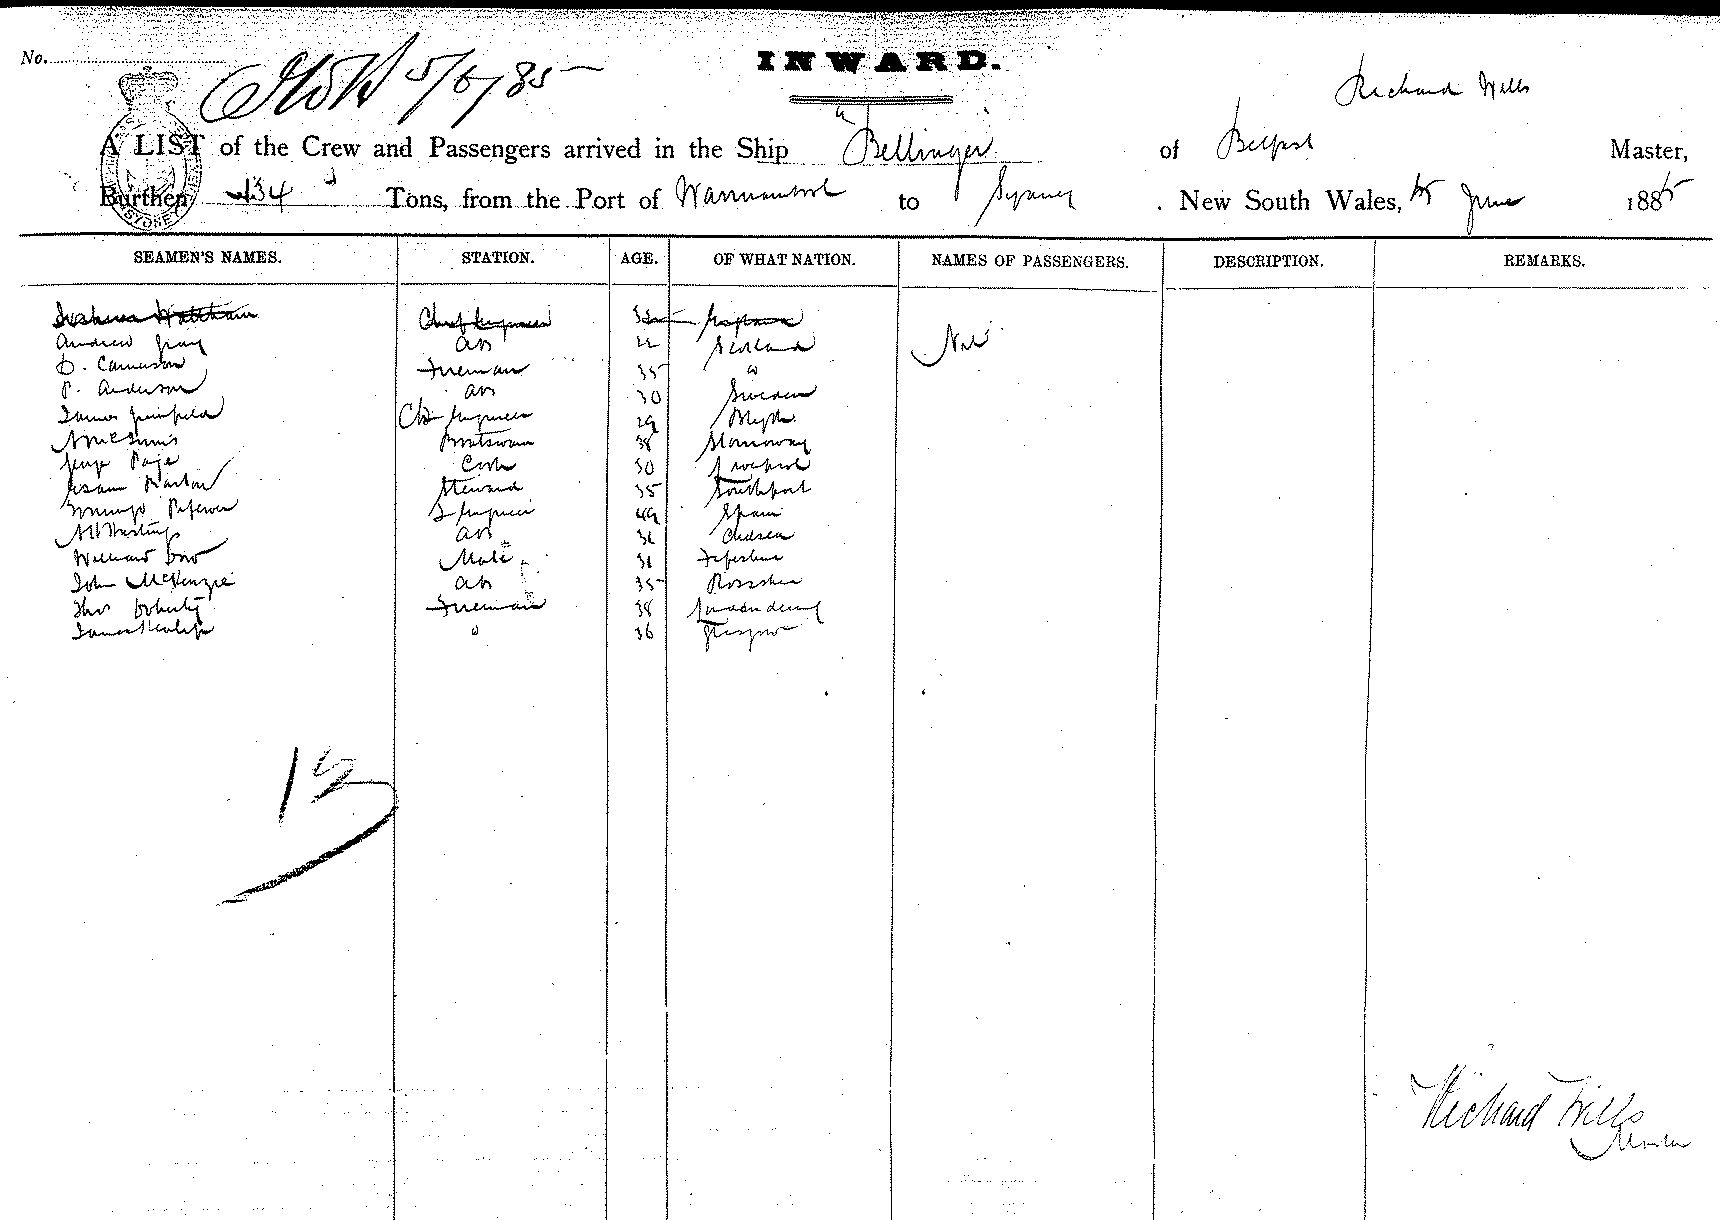 No.
5/6/85
INWARD.
Richard Wills
A LIST of the Crew and Passengers arrived in the Ship "Bellinger" of Belfast Master,
Burthen 134 Tons, from the Port of Warrnambool to Sydney. New South Wales, 5 June 1885
SEAMEN'S NAMES. STATION. AGE. OF WHAT NATION. NAMES OF PASSENGERS. DESCRIPTION. REMARKS.
Chief Engineer
Andrew Gray AB 22 Scotland Nil
D. Cameron Fireman 35 "
P. Anderson AB 30 Sweden
James Ch Engineer 29 Blyth
McGinnis Boatswain 38 Stornoway
George Page Cook 30 Liverpool
Barton Steward 35 Southport
2 Engineer 49 Spain
Hastings AB 36 Chelsea
William Dow Mate 31 Fifeshire
John McKenzie AB 35 Rosshire
Thos Doherty Fireman 38 Londonderry
James " 36 Glasgow
13
Richard Wills
Master